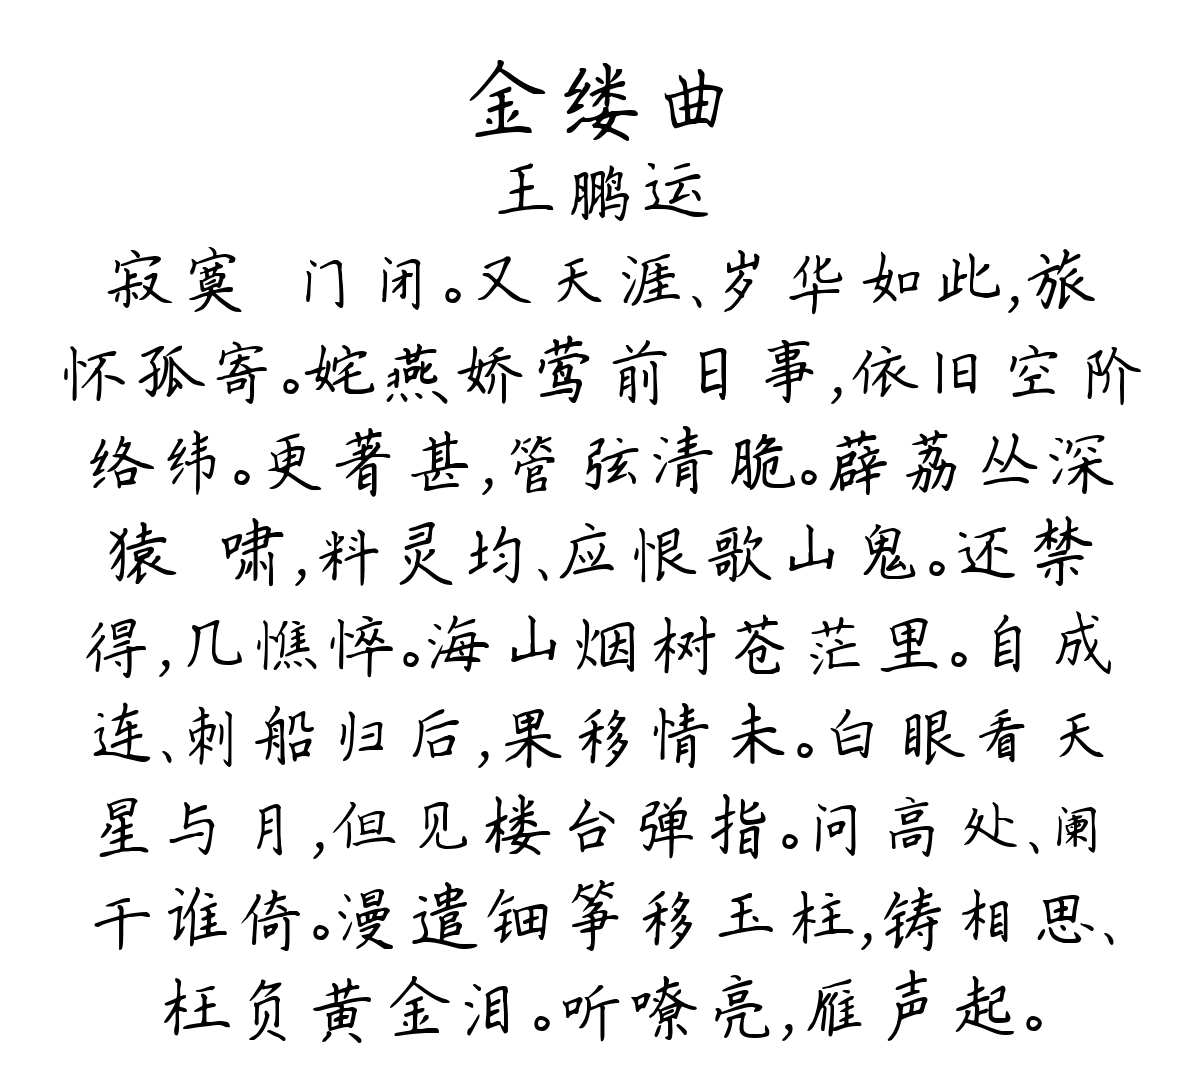 金缕曲
王鹏运
寂寞 门闭。又天涯、岁华如此,旅
怀孤寄。姹燕娇莺前日事,依旧空阶
络纬。更著甚,管弦清脆。薜荔丛深
猿 啸,料灵均、应恨歌山鬼。还禁
得,几憔悴。海山烟树苍茫里。自成
连、刺船归后,果移情未。白眼看天
星与月,但见楼台弹指。问高处、阑
干谁倚。漫遣钿筝移玉柱,铸相思、
枉负黄金泪。听嘹亮,雁声起。